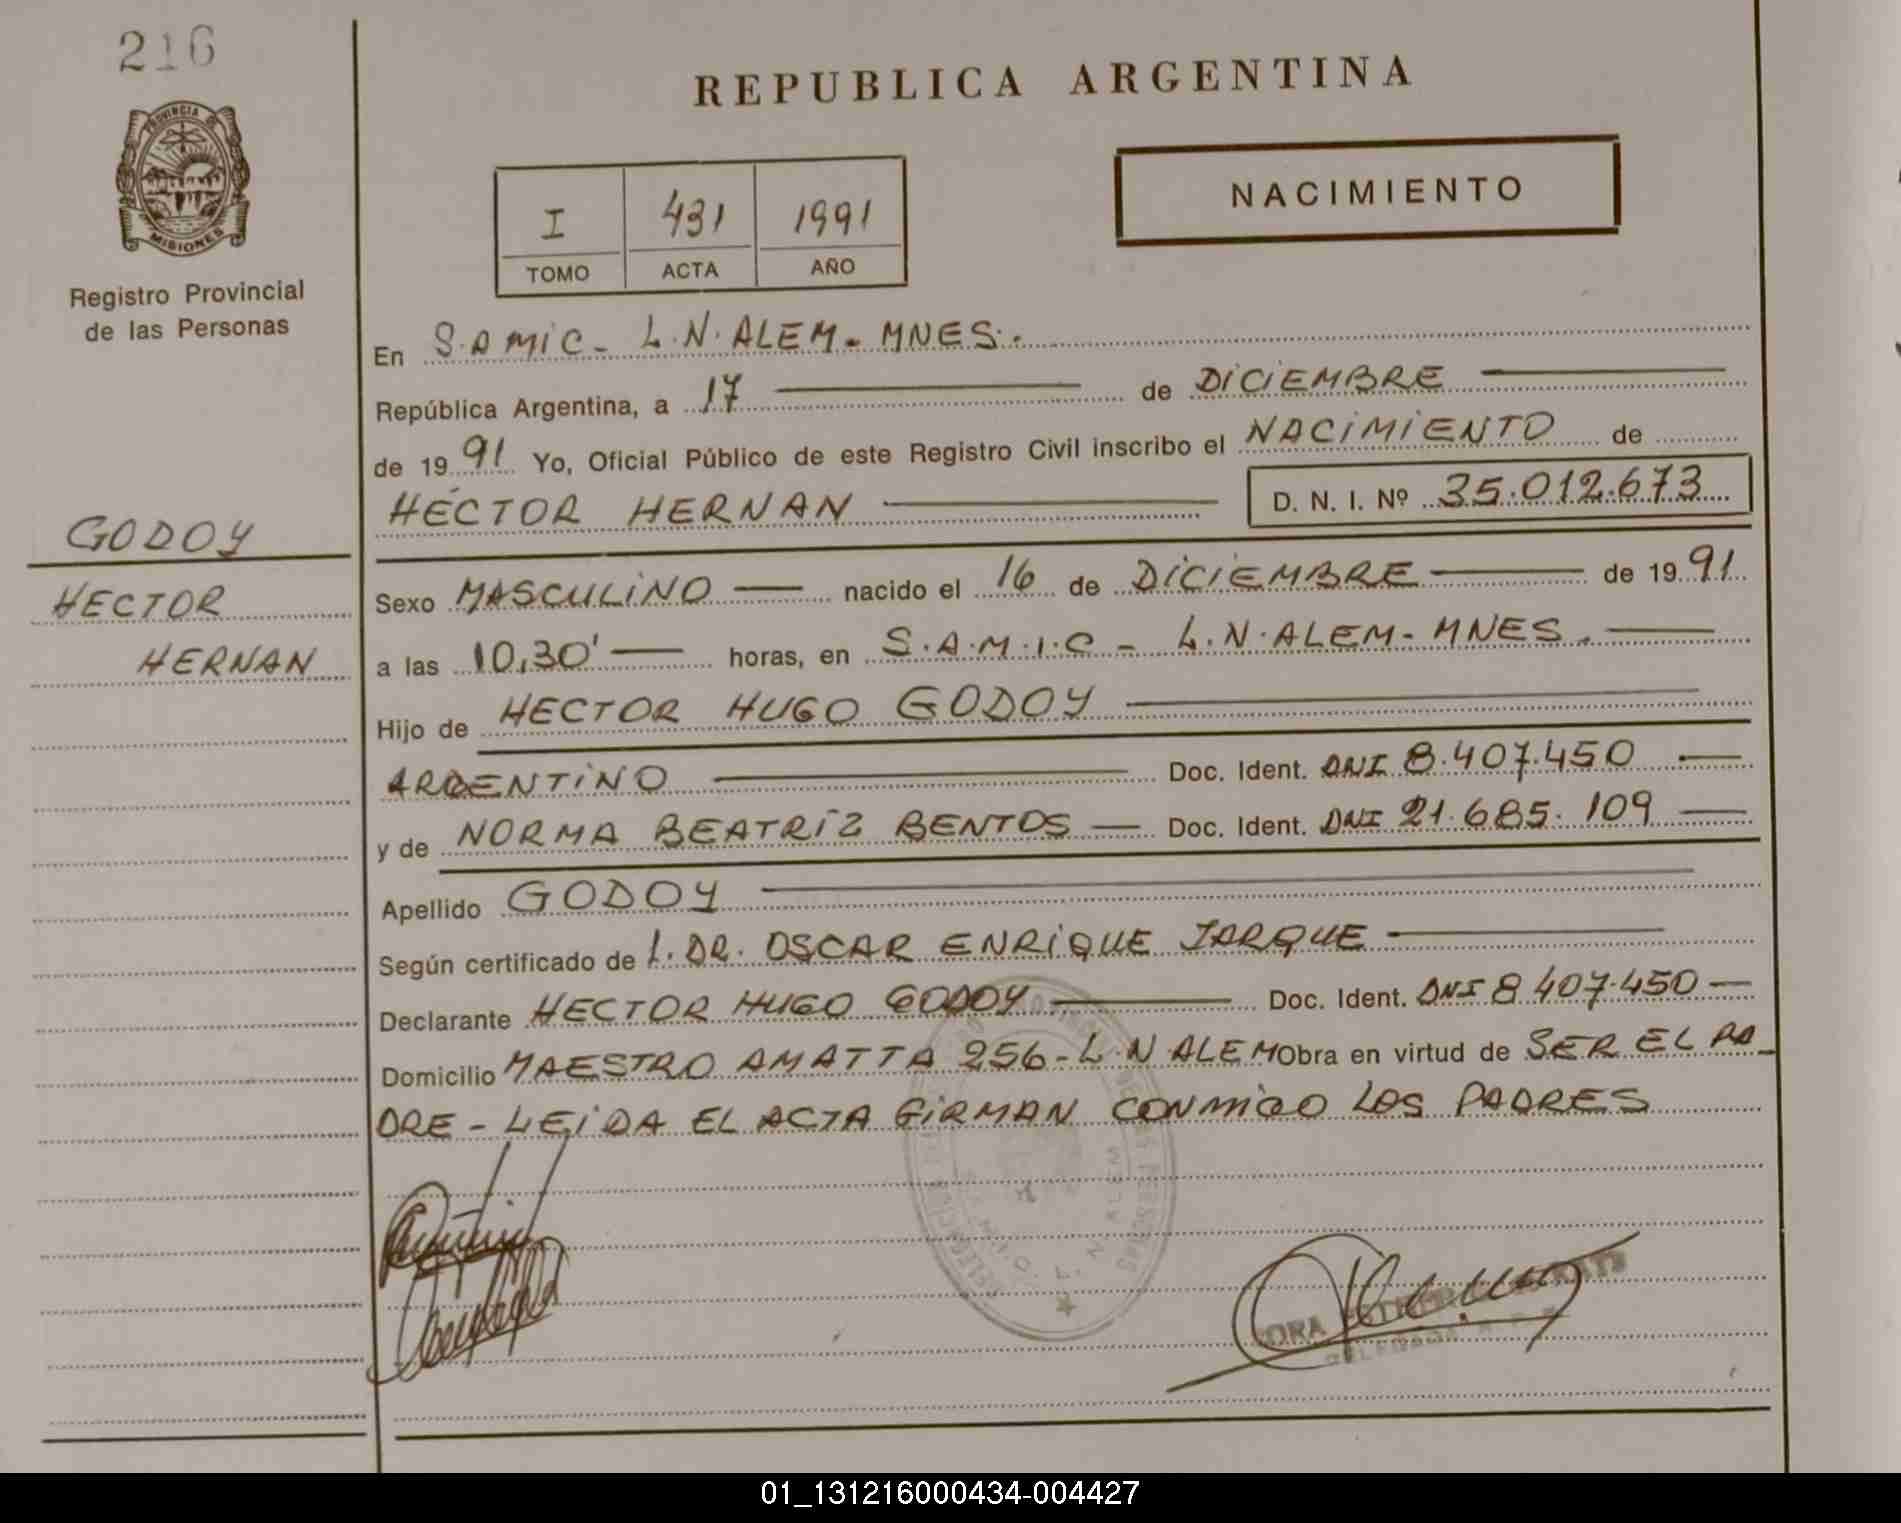 216
PROVINCIA DE
MISIONES
Registro Provincial
de las Personas
GODOY
HECTOR
HERNAN
REPUBLICA ARGENTINA
NACIMIENTO
I 431 1991
TOMO ACTA AÑO
En S.AMIC- L.N.ALEM- MNES.
República Argentina, a 17 de DICIEMBRE
de 1991 Yo, Oficial Público de este Registro Civil inscribo el NACIMIENTO de
HECTOR HERNAN D. N. I. Nº 35.012.673
Sexo MASCULINO nacido el 16 de DICIEMBRE de 1991
a las 10,30' horas, en S.A.M.I.C - L.N.ALEM- MNES.
Hijo de HECTOR HUGO GODOY
ARGENTINO Doc. Ident. DNI 8.407.450
y de NORMA BEATRIZ BENTOS Doc. Ident. DNI 21.685.109
Apellido GODOY
Según certificado de L. DR. OSCAR ENRIQUE JARQUE
Declarante HECTOR HUGO GODOY Doc. Ident. DNI 8 407.450
Domicilio MAESTRO AMATTA 256-L.N ALEM Obra en virtud de SER EL PA_
DRE - LEIDA EL ACTA FIRMAN CONMIGO LOS PADRES
L. N. ALEM
01_131216000434-004427